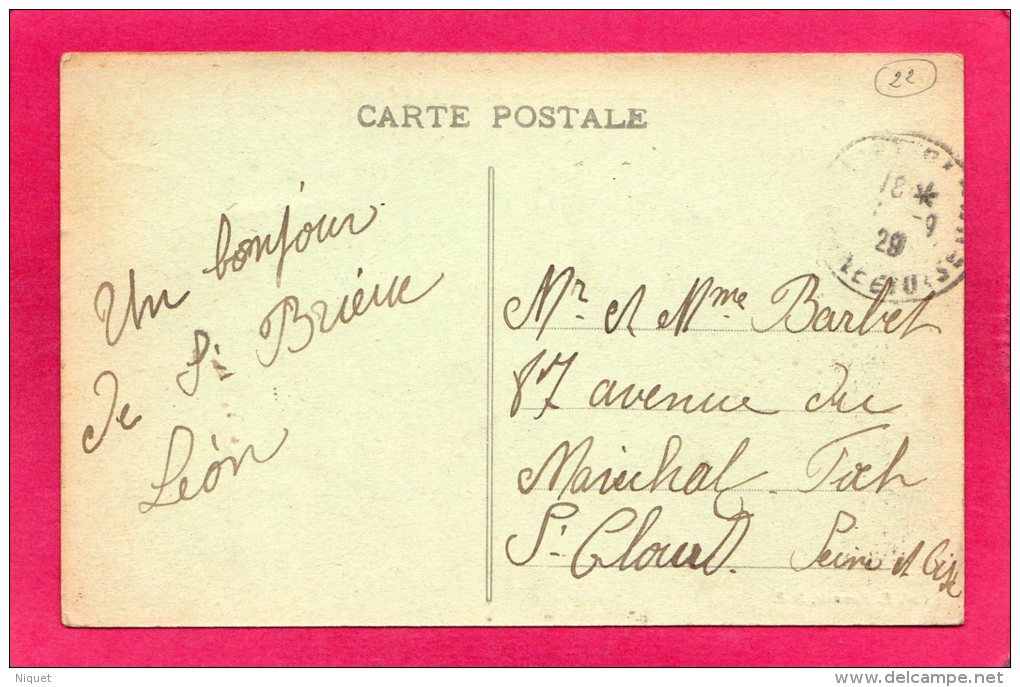 22
CARTE POSTALE
18 *
-9
29
Un bonjour
de St Brieuc
Léon
Mr et Mme Barbet
87 avenue du
Maréchal Foch
St Cloud. Seine et Oise
Niquet
www.delcampe.net